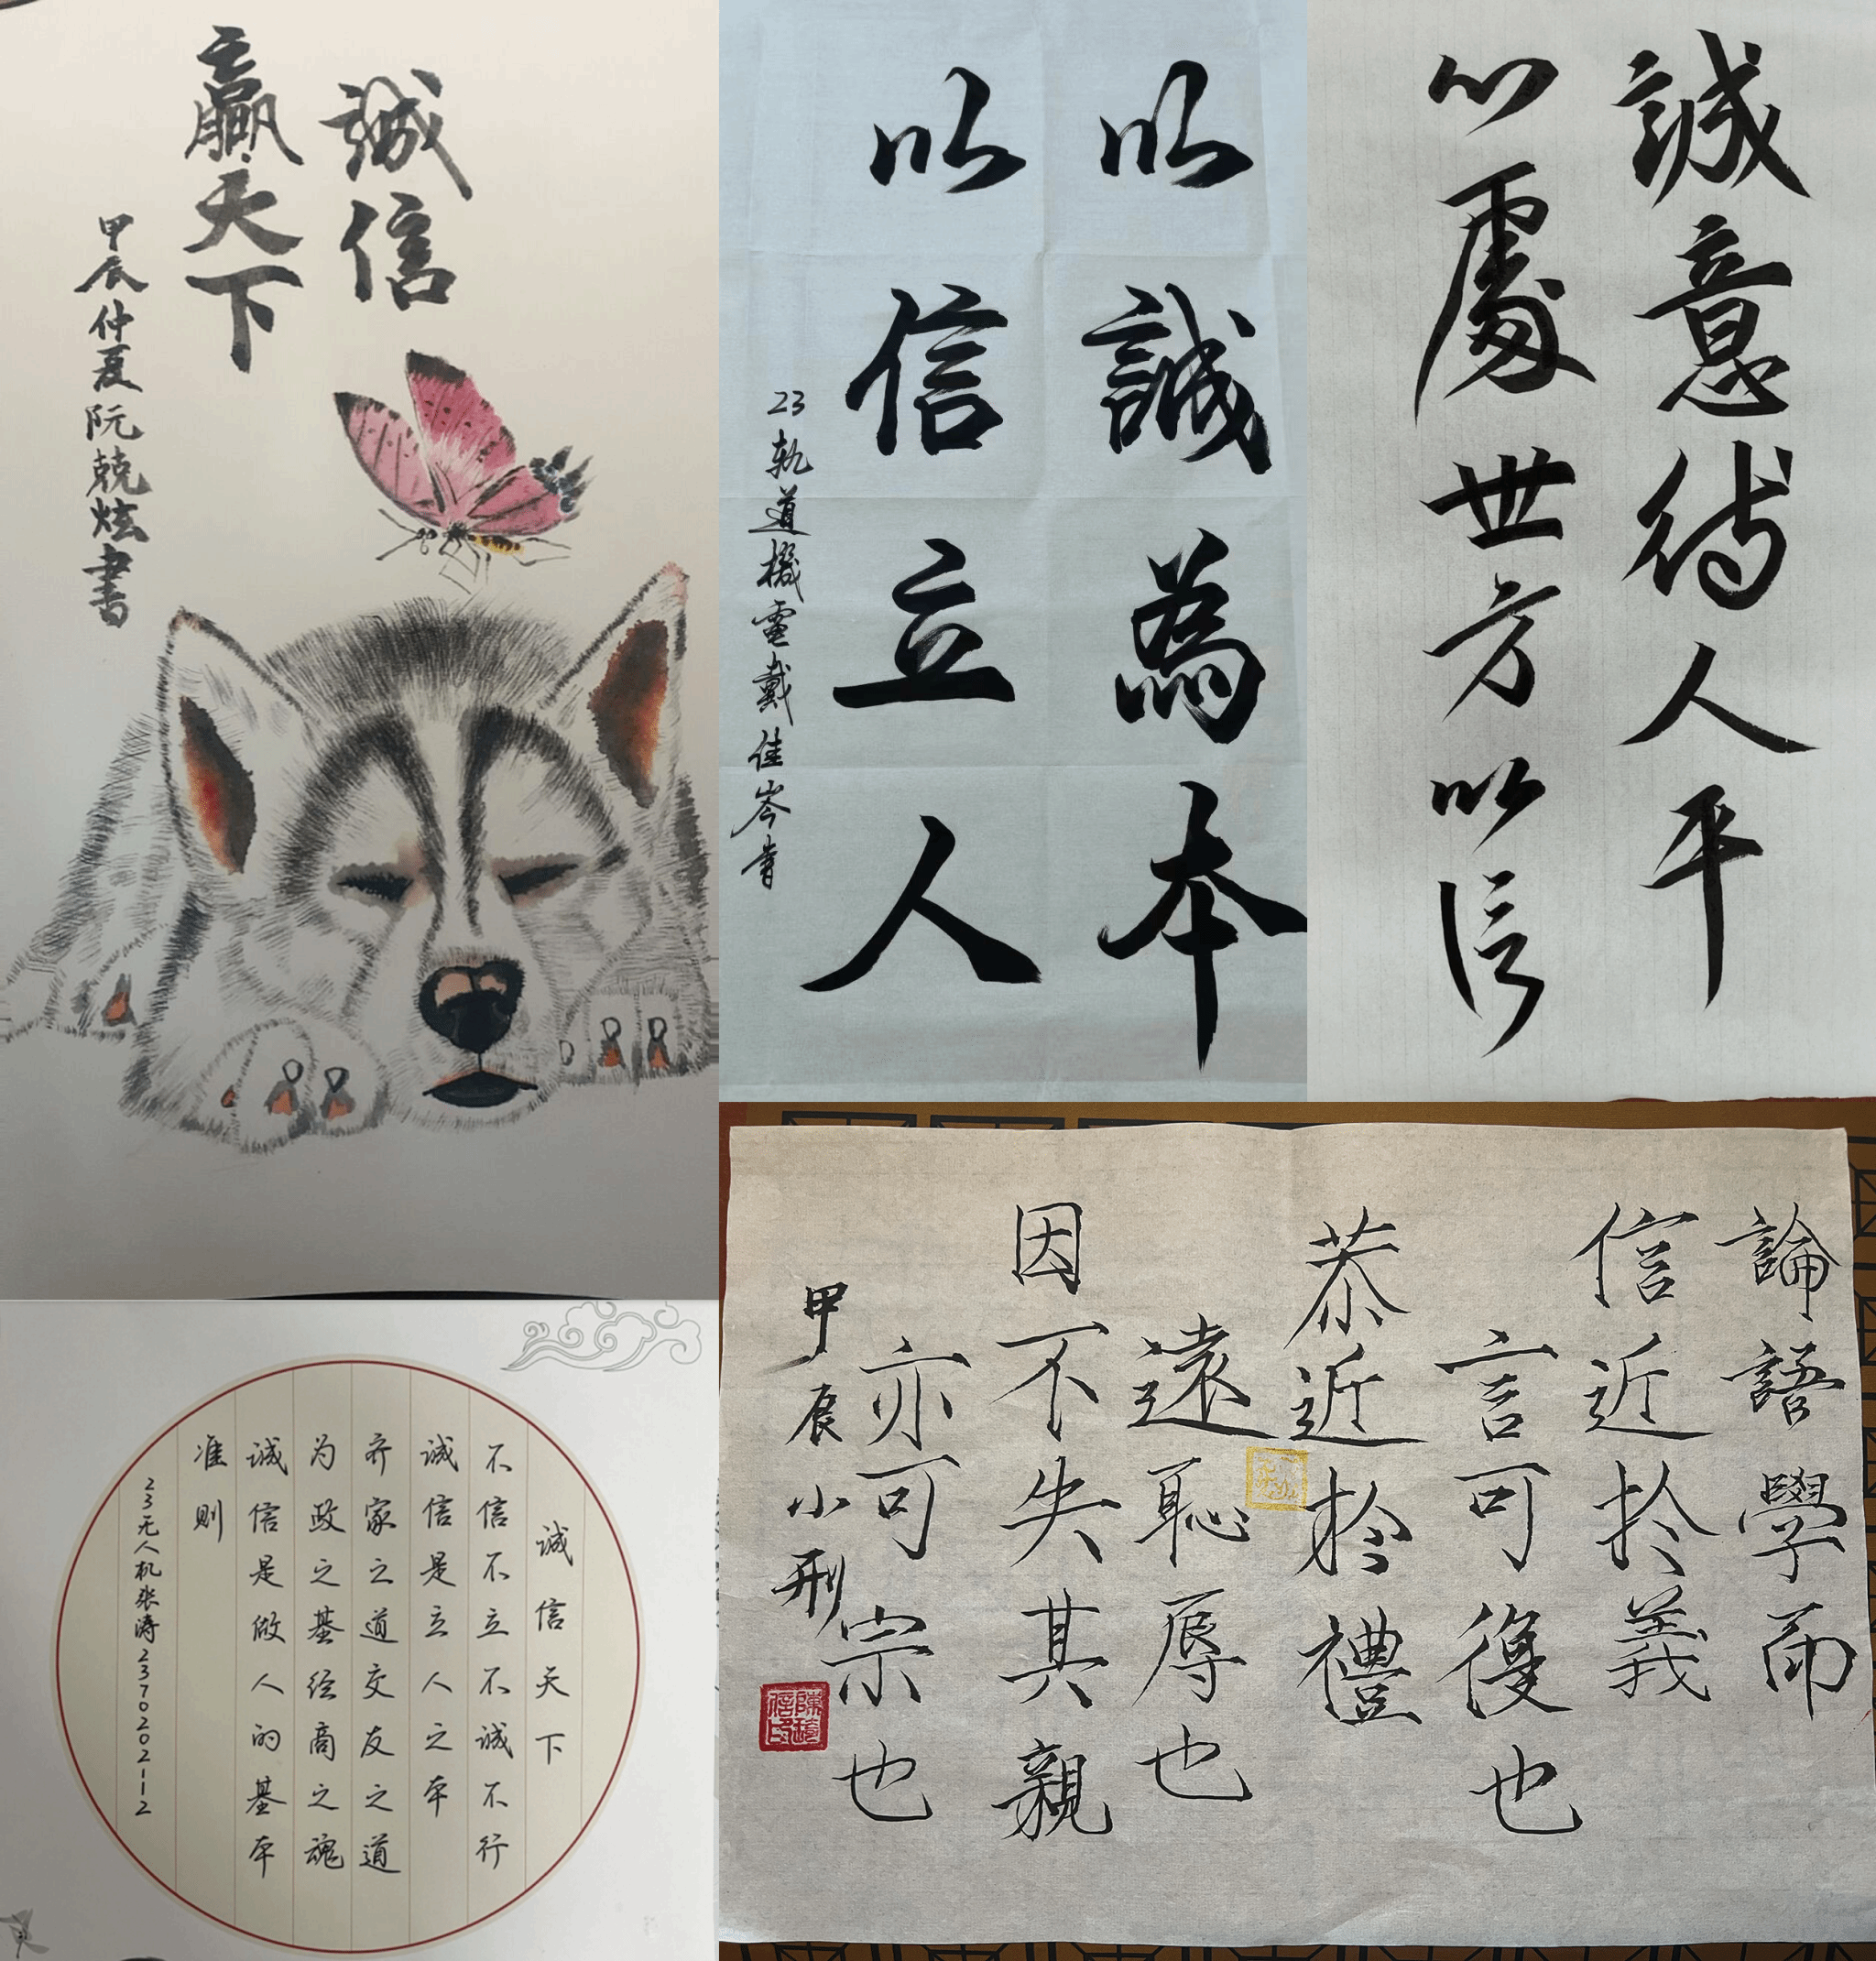 誠信
贏天下
甲辰仲夏阮兢炫書
以誠為本
以信立人
23軌道機電戴佳岑書
誠意待人平
心處世方以信
诚信天下
不信不立不诚不行
诚信是立人之本
齐家之道交友之道
为政之基经商之魂
诚信是做人的基本
准则
23无人机张涛2370202112
論語學而
信近於義
言可復也
恭近於禮
遠恥辱也
因不失其親
亦可宗也
甲辰小刑